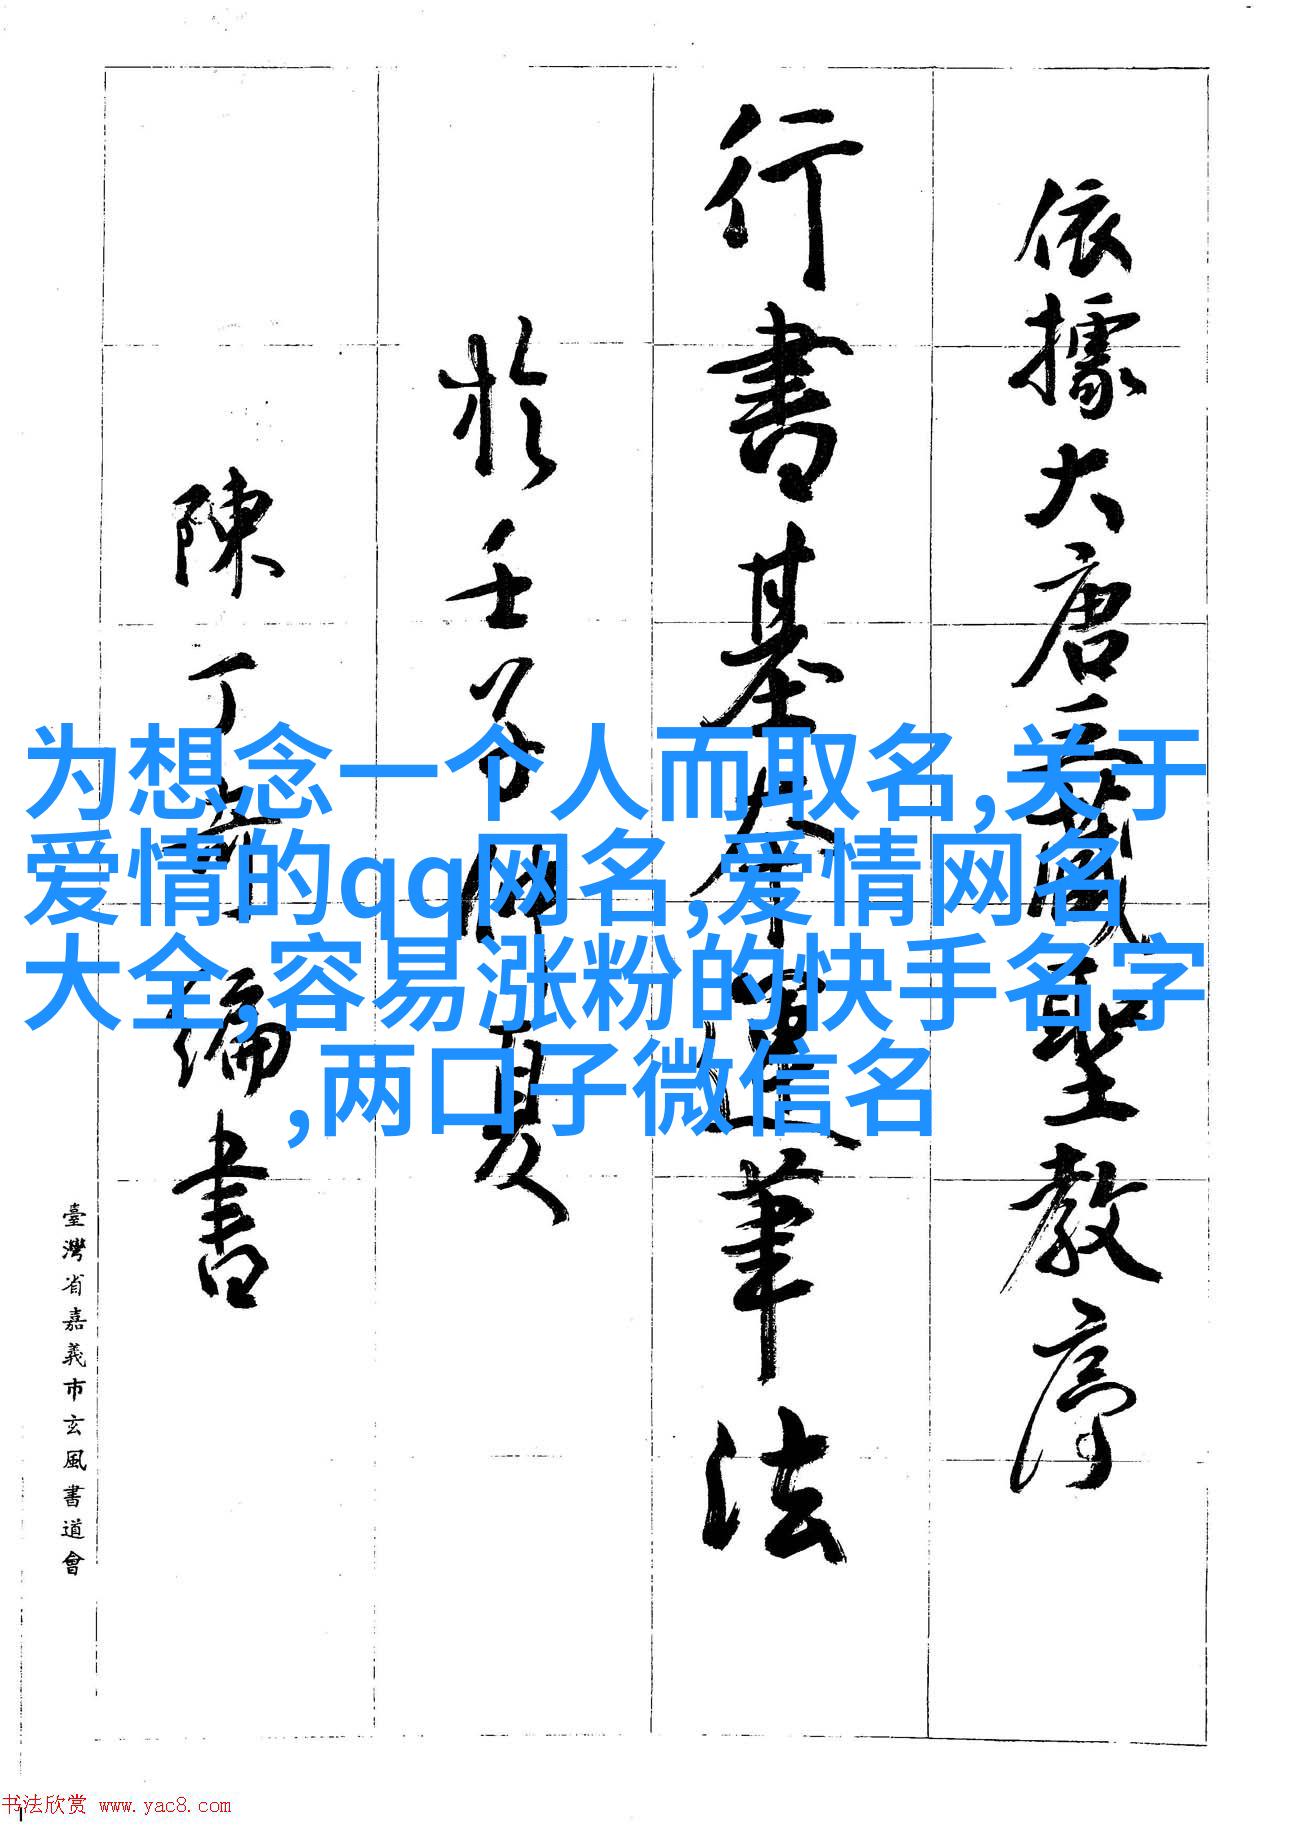 依據大唐三藏聖教序
行書基本運筆法
於壬子仲夏
陳丁奇編書
臺灣省嘉義市玄風書道會
为想念一个人而取名,关于
爱情的qq网名,爱情网名
大全,容易涨粉的快手名字
,两口子微信名
书法欣赏 www.yac8.com